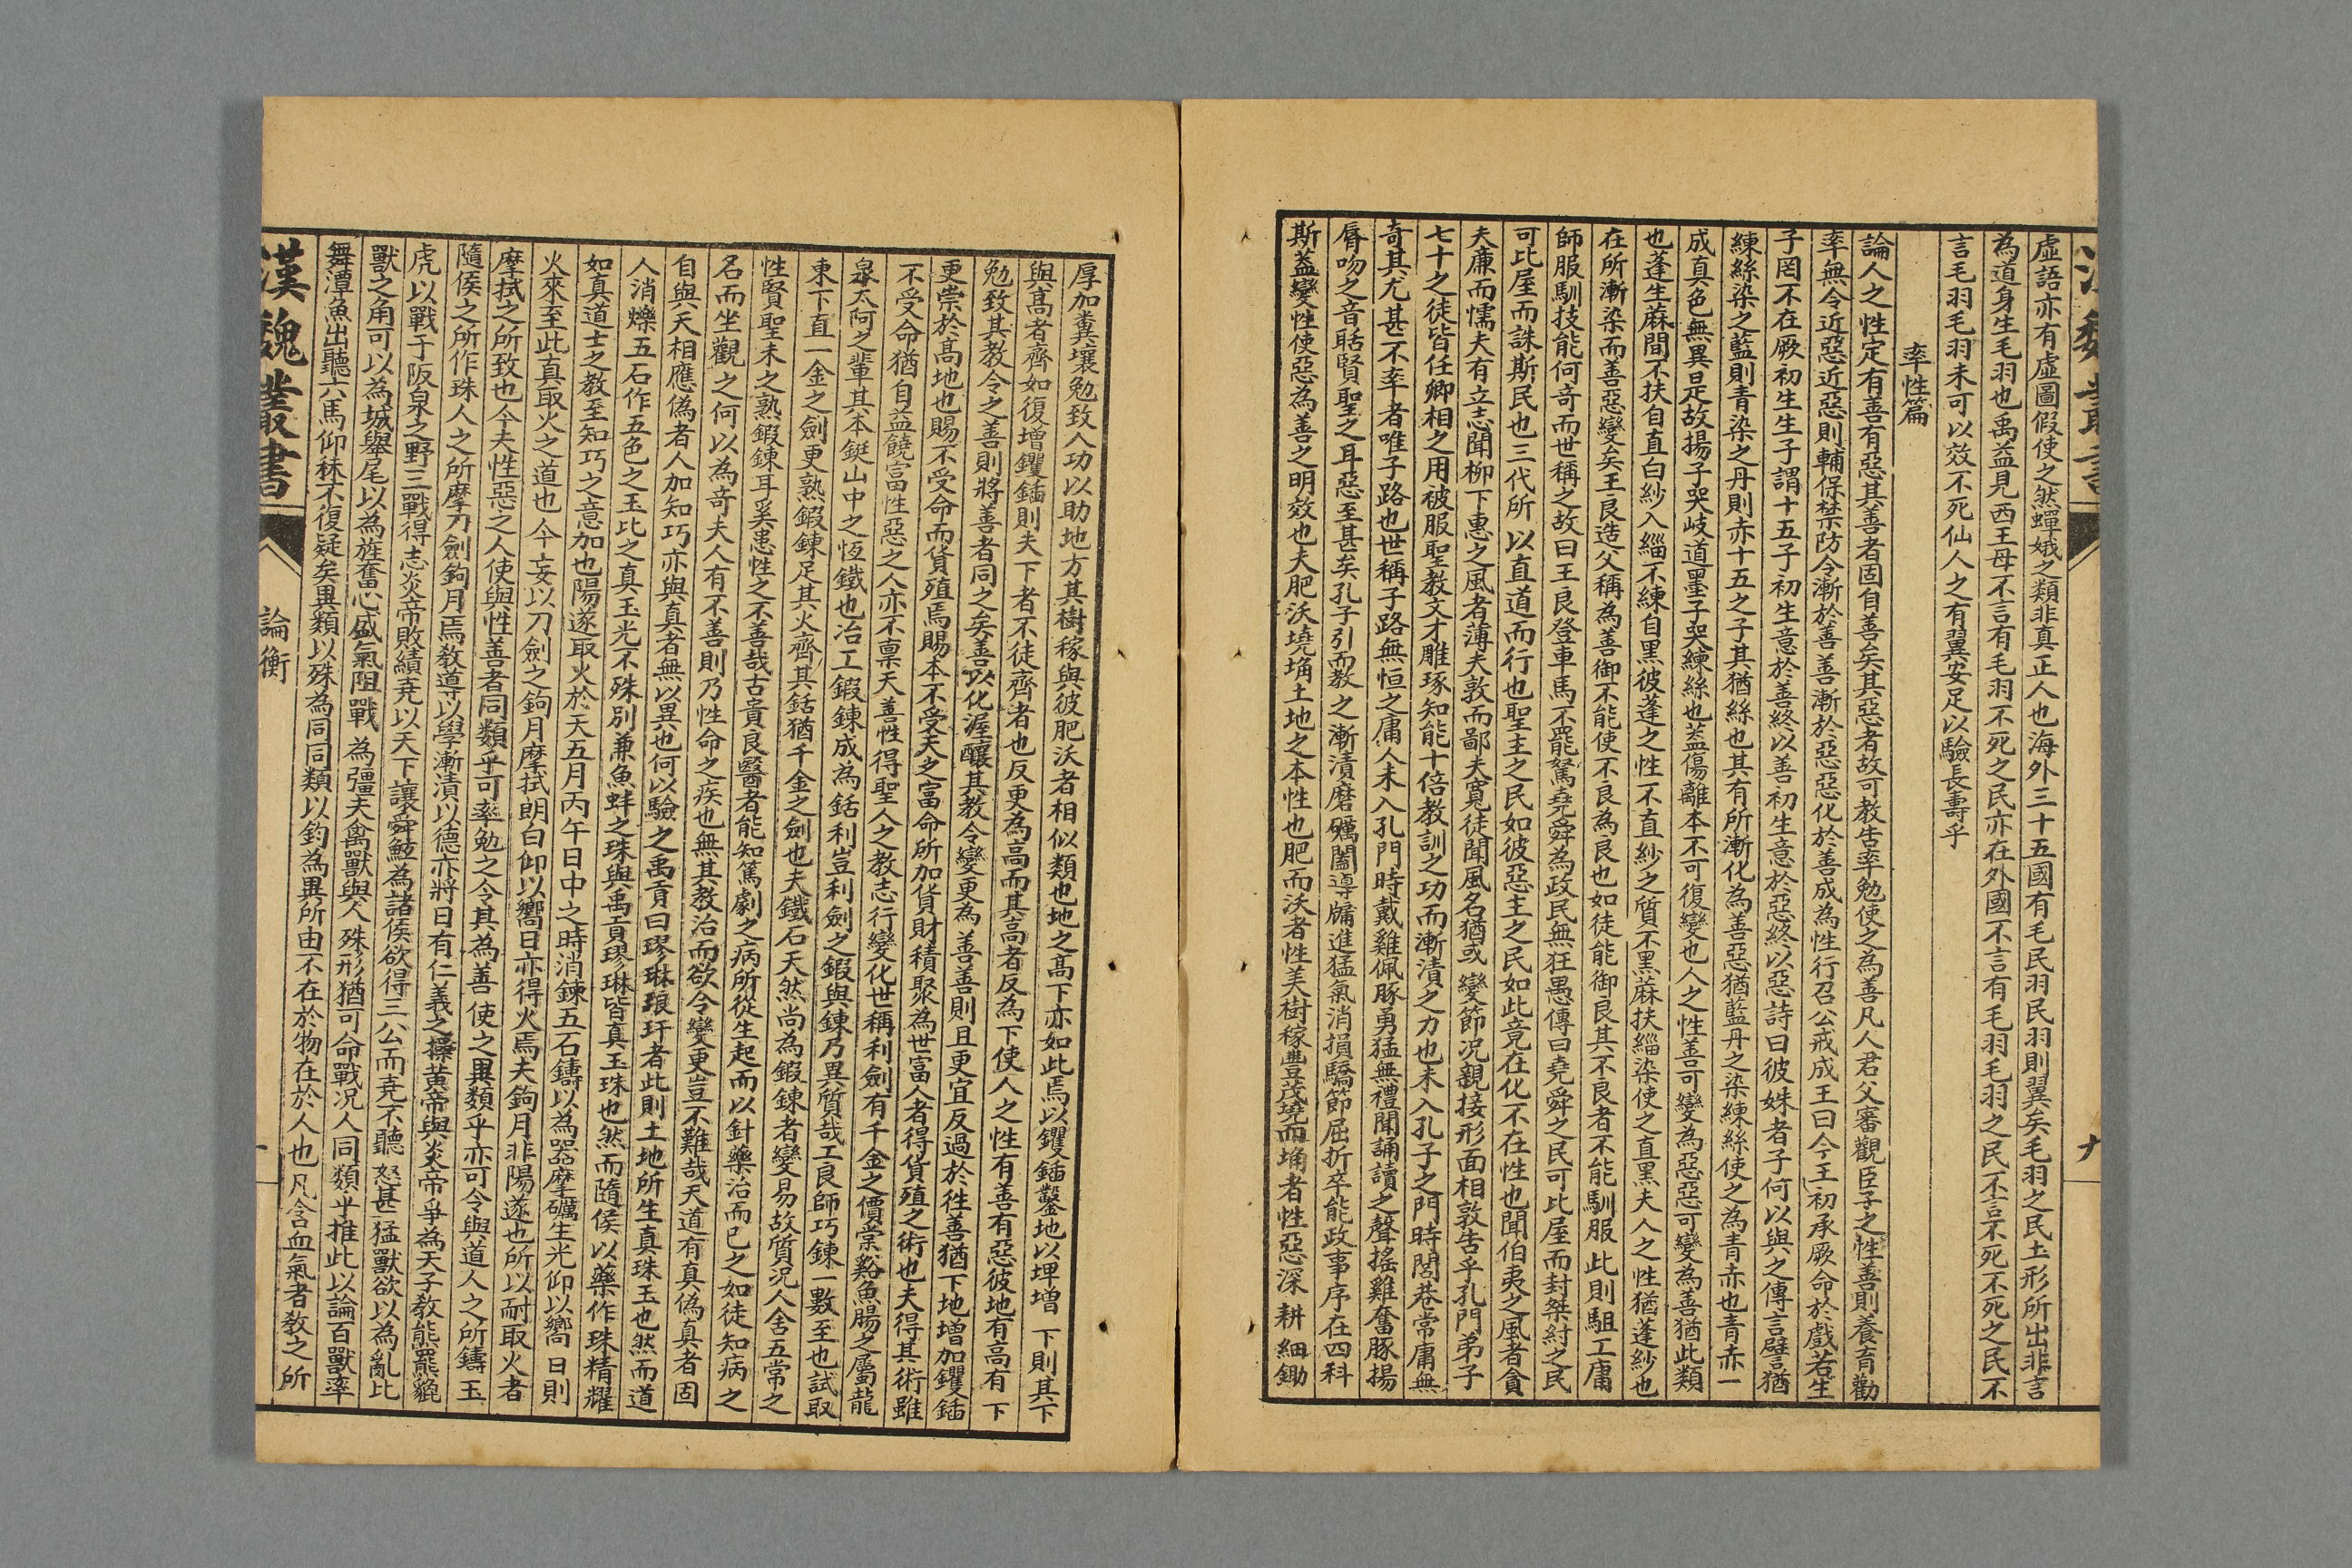 虛語亦有虛圖假使之然蟬娥之類非真正人也海外三十五國有毛民羽民羽則翼矣毛羽之民土形所出非言
為道身生毛羽也禹益見西王母不言有毛羽不死之民亦在外國不言有毛羽毛羽之民不言不死不死之民不
言毛羽毛羽未可以效不死仙人之有翼安足以驗長壽乎
率性篇
論人之性定有善有惡其善者固自善矣其惡者故可教告率勉使之為善凡人君父審觀臣子之性善則養育勸
率無令近惡近惡則輔保禁防令漸於善善漸於惡惡化於善成為性行召公戒成王曰今王初承厥命於戲若生
子罔不在厥初生生子謂十五子初生意於善終以善初生意於惡終以惡詩曰彼姝者子何以與之傳言譬猶
練絲染之藍則青染之丹則赤十五之子其猶絲也其有所漸化為善惡猶藍丹之染練絲使之為青赤也青赤一
成真色無異是故揚子哭岐道墨子哭練絲也蓋傷離本不可復變也人之性善可變為惡惡可變為善猶此類
也蓬生蔴間不扶自直白紗入緇不練自黑彼蓬之性不直紗之質不黑蔴扶緇染使之直黑夫人之性猶蓬紗也
在所漸染而善惡變矣王良造父稱為善御不能使不良為良也如徒能御良其不良者不能馴服此則駔工庸
師服馴技能何奇而世稱之故曰王良登車馬不罷駑堯舜為政民無狂愚傳曰堯舜之民可比屋而封桀紂之民
可比屋而誅斯民也三代所以直道而行也聖主之民如彼惡主之民如此竟在化不在性也聞伯夷之風者貪
夫廉而懦夫有立志聞柳下惠之風者薄夫敦而鄙夫寬徒聞風名猶或變節況親接形面相敦告乎孔門弟子
七十之徒皆任卿相之用被服聖教文才雕琢知能十倍教訓之功而漸漬之力也未入孔子之門時閭巷常庸無
奇其尤甚不率者唯子路也世稱子路無恒之庸人未入孔門時戴雞佩豚勇猛無禮聞誦讀之聲搖雞奮豚揚
脣吻之音聒賢聖之耳惡至甚矣孔子引而教之漸漬磨礪闓導牖進猛氣消損驕節屈折卒能政事序在四科
斯蓋變性使惡為善之明效也夫肥沃墝埆土地之本性也肥而沃者性美樹稼豐茂墝而埆者性惡深耕細鋤
厚加糞壤勉致人功以助地力其樹稼與彼肥沃者相似類也地之高下亦如此焉以钁鍤鑿地以埤增下則其下
與高者齊如復增钁鍤則夫下者不徒齊者也反更為高而其高者反為下使人之性有善有惡彼地有高有下
勉致其教令之善則將善者同之矣善以化渥釀其教令變更為善善則且更宜反過於往善猶下地增加钁鍤
更崇於高地也賜不受命而貨殖焉賜本不受天之富命所加貨財積聚為世富人者得貨殖之術也夫得其術雖
不受命猶自益饒富性惡之人亦不稟天善性得聖人之教志行變化世稱利劍有千金之價棠谿魚腸之屬龍
泉太阿之輩其本鋌山中之恆鐵也冶工鍛鍊成為銛利豈利劍之鍛與鍊乃異質哉工良師巧鍊一數至也試取
東下直一金之劍更熟鍛鍊足其火齊其銛猶千金之劍也夫鐵石天然尚為鍛鍊者變易故質況人含五常之
性賢聖未之熟鍛鍊耳奚患性之不善哉古貴良醫者能知篤劇之病所從生起而以針藥治而已之如徒知病之
名而坐觀之何以為奇夫人有不善則乃性命之疾也無其教治而欲令變更豈不難哉天道有真偽真者固
自與天相應偽者人加知巧亦與真者無以異也何以驗之禹貢曰璆琳琅玕者此則土地所生真珠玉也然而道
人消爍五石作五色之玉比之真玉光不殊別兼魚蚌之珠與禹貢璆琳皆真玉珠也然而隨侯以藥作珠精耀
如真道士之教至知巧之意加也陽遂取火於天五月丙午日中之時消鍊五石鑄以為器摩礪生光仰以嚮日則
火來至此真取火之道也今妄以刀劍之鉤月摩拭朗白仰以嚮日亦得火焉夫鉤月非陽遂也所以耐取火者
摩拭之所致也今夫性惡之人使與性善者同類乎可率勉之令其為善使之異類乎亦可令與道人之所鑄玉
隨侯之所作珠人之所摩刀劍鉤月焉教導以學漸漬以德亦將日有仁義之操黃帝與炎帝爭為天子教熊羆貔
虎以戰于阪泉之野三戰得志炎帝敗績堯以天下讓舜鯀為諸侯欲得三公而堯不聽怒甚猛獸欲以為亂比
獸之角可以為城舉尾以為旌奮心盛氣阻戰為彊夫禽獸與人殊形猶可命戰況人同類乎推此以論百獸率
舞潭魚出聽六馬仰秣不復疑矣異類以殊為同同類以鈞為異所由不在於物在於人也凡含血氣者教之所
漢魏叢書
論衡